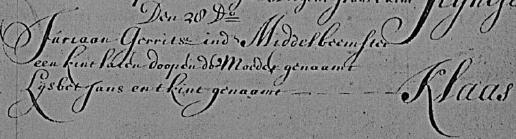 Den 28 Do
Juriaan Gerritsz ind Middelbeemster
een kint laten doopen de Moeder genaamt
Lijsbet Jans en t kint genaamt — Klaas